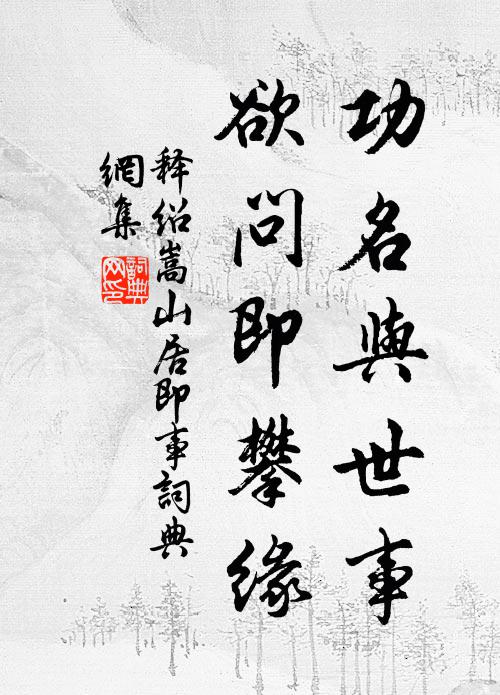 功名與世事
欲問即攀緣
释绍嵩山居即事詞典
網集
詞典网印